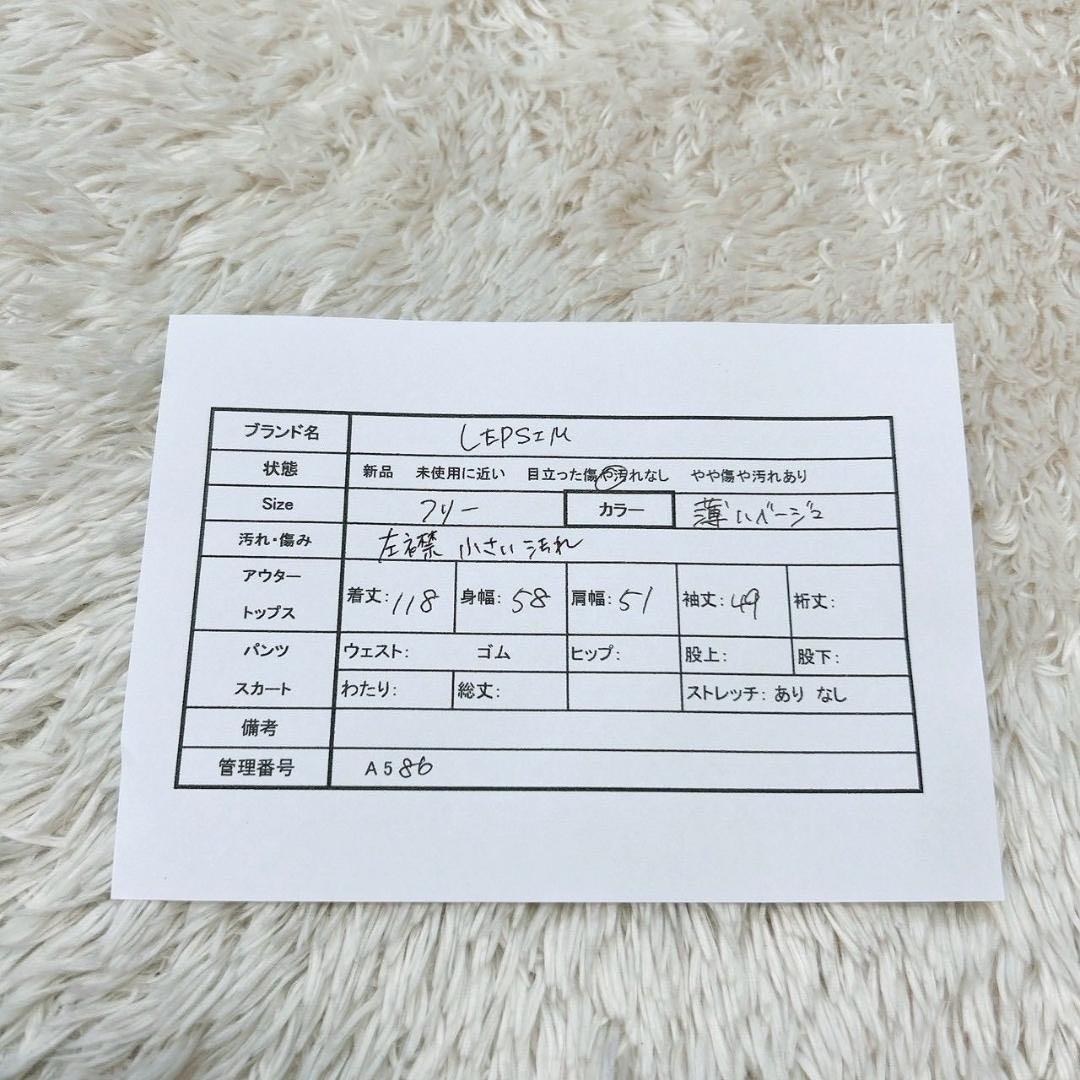 ブランド名 LEPSIM
状態 新品 未使用に近い 目立った傷や汚れなし やや傷や汚れあり
Size フリー カラー 薄いベージュ
汚れ・傷み 左襟 小さい汚れ
アウター
トップス
着丈: 118 身幅: 58 肩幅: 51 袖丈: 49 裄丈:
パンツ ウェスト: ゴム ヒップ: 股上: 股下:
スカート わたり: 総丈: ストレッチ: あり なし
備考
管理番号 A586